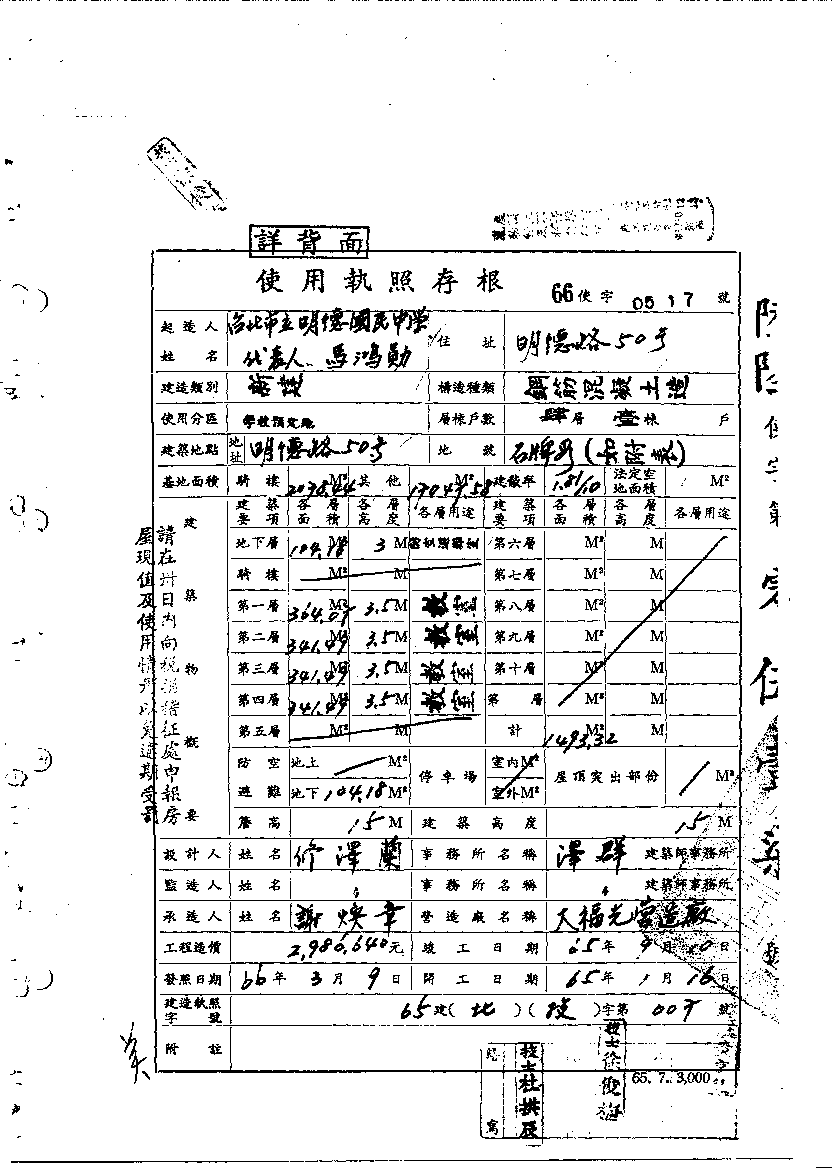 詳背面
使用執照存根
66使字 0517 號
起造人 姓名 台北市立明德國民中學 代表人 馬鴻勛 住址 明德路50号
建造類別 新建 構造種類 鋼筋混凝土造
使用分區 學校預定地 層棟戶數 肆層 壹棟 戶
建築地點 地址 明德路50号 地號 石牌段(如附表)
基地面積 騎樓 M² 其他 17047.58 M² 建蔽率 1.81/10 法定空地面積 M²
建築物概要
建築要項 各層面積 各層高度 各層用途 建築要項 各層面積 各層高度 各層用途
地下層 104.18 M² 3 M 第六層 M² M
騎樓 M² M 第七層 M² M
第一層 364.07 M² 3.5 M 教室 第八層 M² M
第二層 341.49 M² 3.5 M 教室 第九層 M² M
第三層 341.49 M² 3.5 M 教室 第十層 M² M
第四層 341.49 M² 3.5 M 教室 第 層 M² M
第五層 M² M 計 1493.32 M² M
防空避難 地上 M² 停車場 室內 M² 屋頂突出部份 M²
地下 104.18 M² 室外 M²
簷高 15 M 建築高度 15 M
設計人 姓名 修澤蘭 事務所名稱 澤群 建築師事務所
監造人 姓名 〃 事務所名稱 〃 建築師事務所
承造人 姓名 謝煥章 營造廠名稱 大福光營造廠
工程造價 2,986,640元 竣工日期 65年9月10日
發照日期 66年3月9日 開工日期 65年1月16日
建造執照字號 65建(北)( )字第 號
附註
65. 7. 3,000
請在卅日內向稅捐稽征處申報房
屋現值及使用情形以免逾期受罰
技士徐俊梅